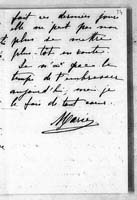 tout ces derniers jours
elle ne peut pas non
plus se mettre
plus tôt en route.
Je n'ai pas le
temps de t'embrasser
aujourd'hui, mais je
le fais de tout cœur.
Marie